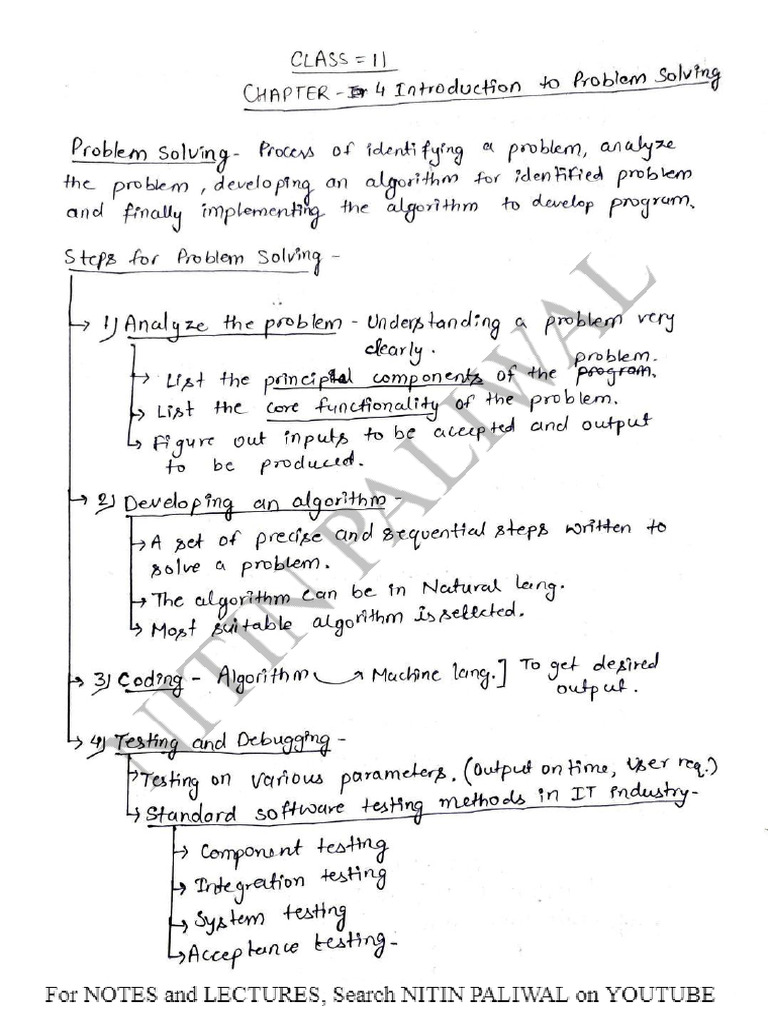 CLASS = 11
CHAPTER - 4 Introduction to Problem Solving
Problem Solving - Process of identifying a problem, analyze
the problem, developing an algorithm for identified problem
and finally implementing the algorithm to develop program.
Steps for Problem Solving -
1) Analyze the problem - Understanding a problem very
clearly.
problem.
List the principal components of the program.
List the core functionality of the problem.
Figure out inputs to be accepted and output
to be produced.
2) Developing an algorithm -
A set of precise and sequential steps written to
solve a problem.
The algorithm can be in Natural lang.
Most suitable algorithm is selected.
3) Coding - Algorithm → Machine lang.] To get desired
output.
4) Testing and Debugging -
Testing on various parameters. (Output on time, User req.)
Standard software testing methods in IT industry -
Component testing
Integration testing
System testing
Acceptance testing -
NITIN PALIWAL
For NOTES and LECTURES, Search NITIN PALIWAL on YOUTUBE